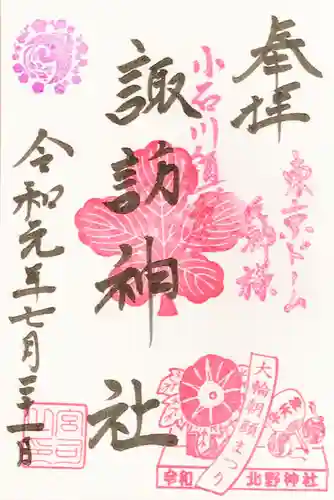 奉拝
東京ドーム
小石川
諏訪神社
令和元年七月二十一日
大輪朝顔まつり
牛天神
令和
北野神社